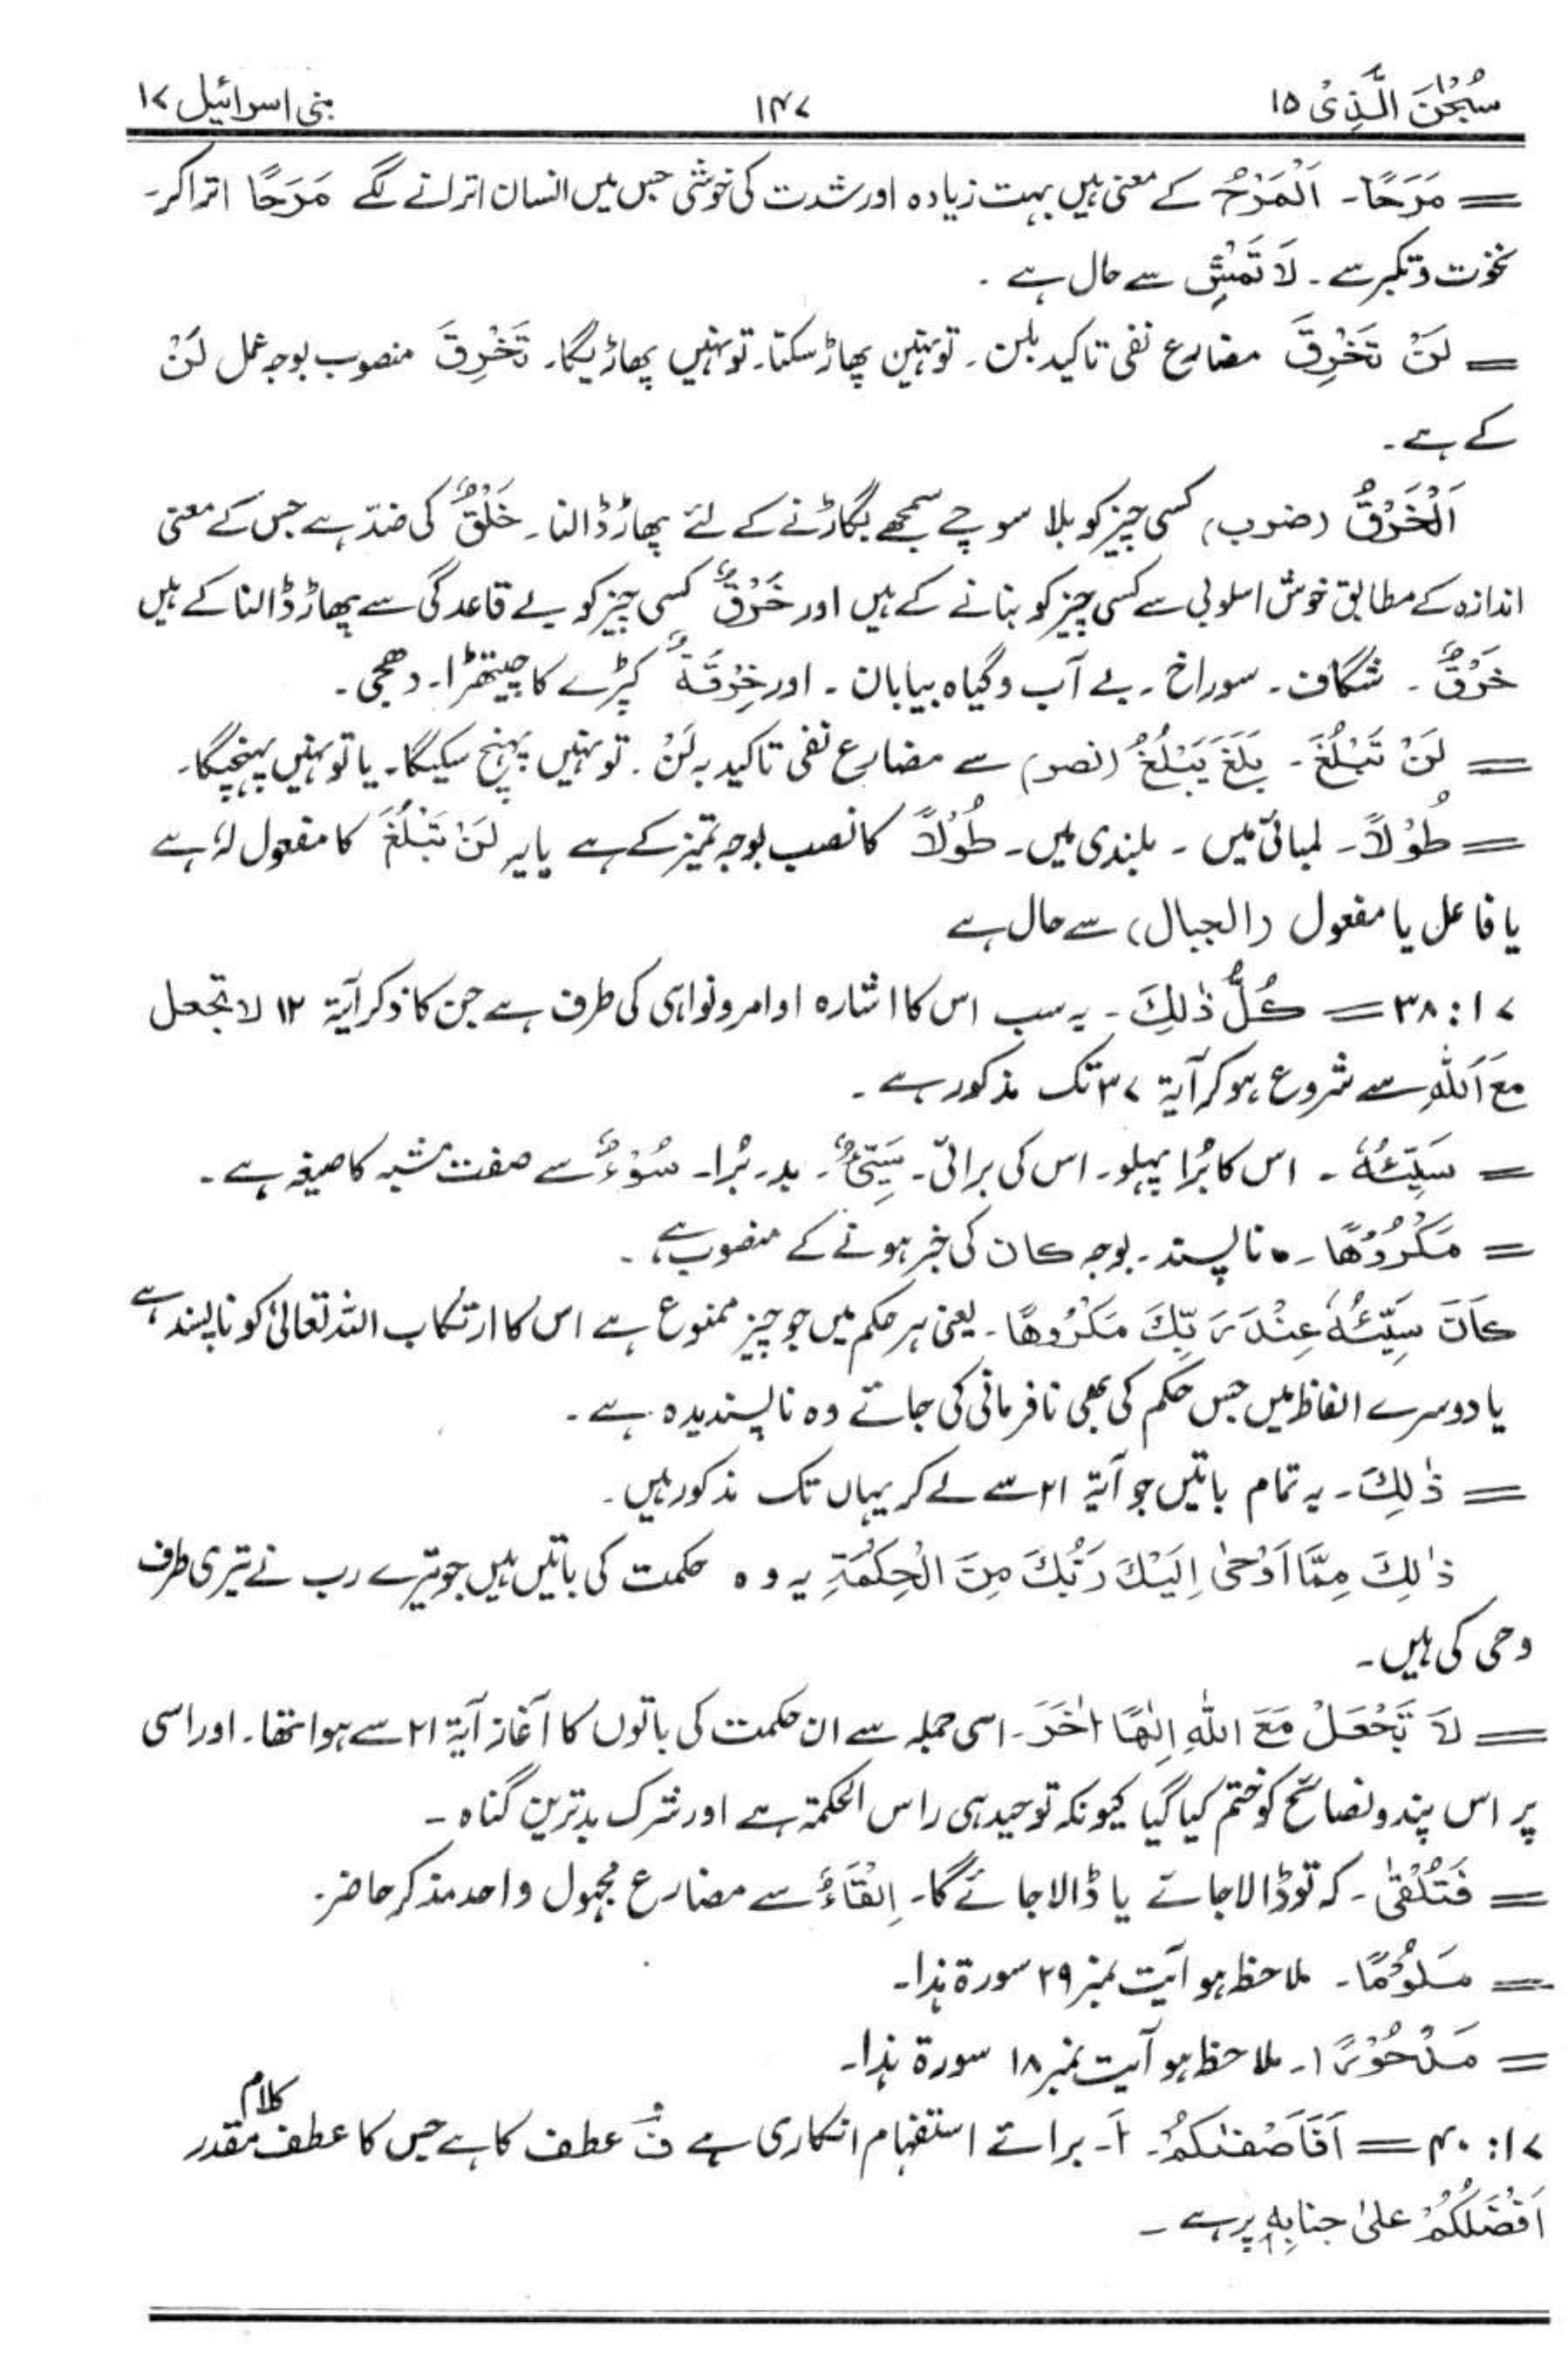 سُبْحٰنَ الَّذِیْ ۱۵ ۱۴۷ بنی اسرائیل ۱۷
= مَرَحًا۔ اَلْمَرَحُ کے معنی ہیں بہت زیادہ اور شدت کی خوشی جس میں انسان اترانے لگے مَرَحًا اتراکر۔
نخوت و تکبر سے۔ لَا تَمْشِ سے حال ہے۔
= لَنْ تَخْرِقَ مضارع نفی تاکید بلن۔ تو نہیں پھاڑ سکتا۔ تو نہیں پھاڑیگا۔ تَخْرِقَ منصوب بوجہ عمل لَنْ
کے ہے۔
اَلْخَرْقُ (ضرب) کسی چیز کو بلا سوچے سمجھے بگاڑنے کے لئے پھاڑ ڈالنا۔ خَلْقٌ کی ضد ہے جس کے معنی
اندازہ کے مطابق خوش اسلوبی سے کسی چیز کو بنانے کے ہیں اور خَرْقٌ کسی چیز کو بے قاعدگی سے پھاڑ ڈالنا کے ہیں
خَرْقٌ۔ شگاف۔ سوراخ۔ بے آب و گیاہ بیابان۔ اور خِرْقَةٌ کپڑے کا چیتھڑا۔ دھجی۔
= لَنْ تَبْلُغَ۔ بَلَغَ یَبْلُغُ (نصر) سے مضارع نفی تاکید بہ لَنْ۔ تو نہیں پہنچ سکیگا۔ یا تو نہیں پہنچیگا۔
= طُوْلاً۔ لمبائی میں۔ بلندی میں۔ طُوْلاً کا نصب بوجہ تمیز کے ہے یا یہ لَنْ تَبْلُغَ کا مفعول لہٗ ہے
یا فاعل یا مفعول (الجبال) سے حال ہے
۱۷: ۳۸ = کُلُّ ذٰلِكَ۔ یہ سب اس کا اشارہ اوامر و نواہی کی طرف ہے جن کا ذکر آیۃ ۱۲ لا تجعل
مَعَ اَللّٰہِ سے شروع ہو کر آیۃ ۳۷ تک مذکور ہے۔
= سَیِّئُہٗ۔ اس کا بُرا پہلو۔ اس کی برائی۔ سَیِّئٌ۔ بد۔ بُرا۔ سُوْءٌ سے صفت مشبہ کا صیغہ ہے۔
= مَکْرُوْھًا۔ ناپسند۔ بوجہ کان کی خبر ہونے کے منصوب ہے۔
کَانَ سَیِّئُہٗ عِنْدَ رَبِّكَ مَکْرُوھًا۔ یعنی ہر حکم میں جو چیز ممنوع ہے اس کا ارتکاب اللہ تعالیٰ کو ناپسند ہے
یا دوسرے الفاظ میں جس حکم کی بھی نافرمانی کی جائے وہ ناپسندیدہ ہے۔
= ذٰلِكَ۔ یہ تمام باتیں جو آیۃ ۲۱ سے لے کر یہاں تک مذکور ہیں۔
ذٰلِكَ مِمَّا اَوْحٰی اِلَیْكَ رَبُّكَ مِنَ الْحِکْمَۃِ یہ وہ حکمت کی باتیں ہیں جو تیرے رب نے تیری طرف
وحی کی ہیں۔
= لَا تَجْعَلْ مَعَ اللّٰہِ اِلٰھًا اٰخَرَ۔ اسی جملہ سے ان حکمت کی باتوں کا آغاز آیۃ ۲۱ سے ہوا تھا۔ اور اسی
پر اس پند و نصائح کو ختم کیا گیا کیونکہ توحید ہی راس الحکمۃ ہے اور شرک بدترین گناہ۔
= فَتُلْقٰی۔ کہ تو ڈالا جائے یا ڈالا جائے گا۔ اِلْقَاءٌ سے مضارع مجہول واحد مذکر حاضر۔
= مَلُوْمًا۔ ملاحظہ ہو آیت نمبر ۲۹ سورۃ ہذا۔
= مَدْحُوْرًا۔ ملاحظہ ہو آیت نمبر ۱۸ سورۃ ہذا۔
۱۷: ۴۰ = اَفَاَصْفٰکُمْ۔ اَ۔ برائے استفہام انکاری ہے فَ عطف کا ہے جس کا عطف کلام مقدر
اَفْضَلَکُمْ علیٰ جنابِہٖ پر ہے۔